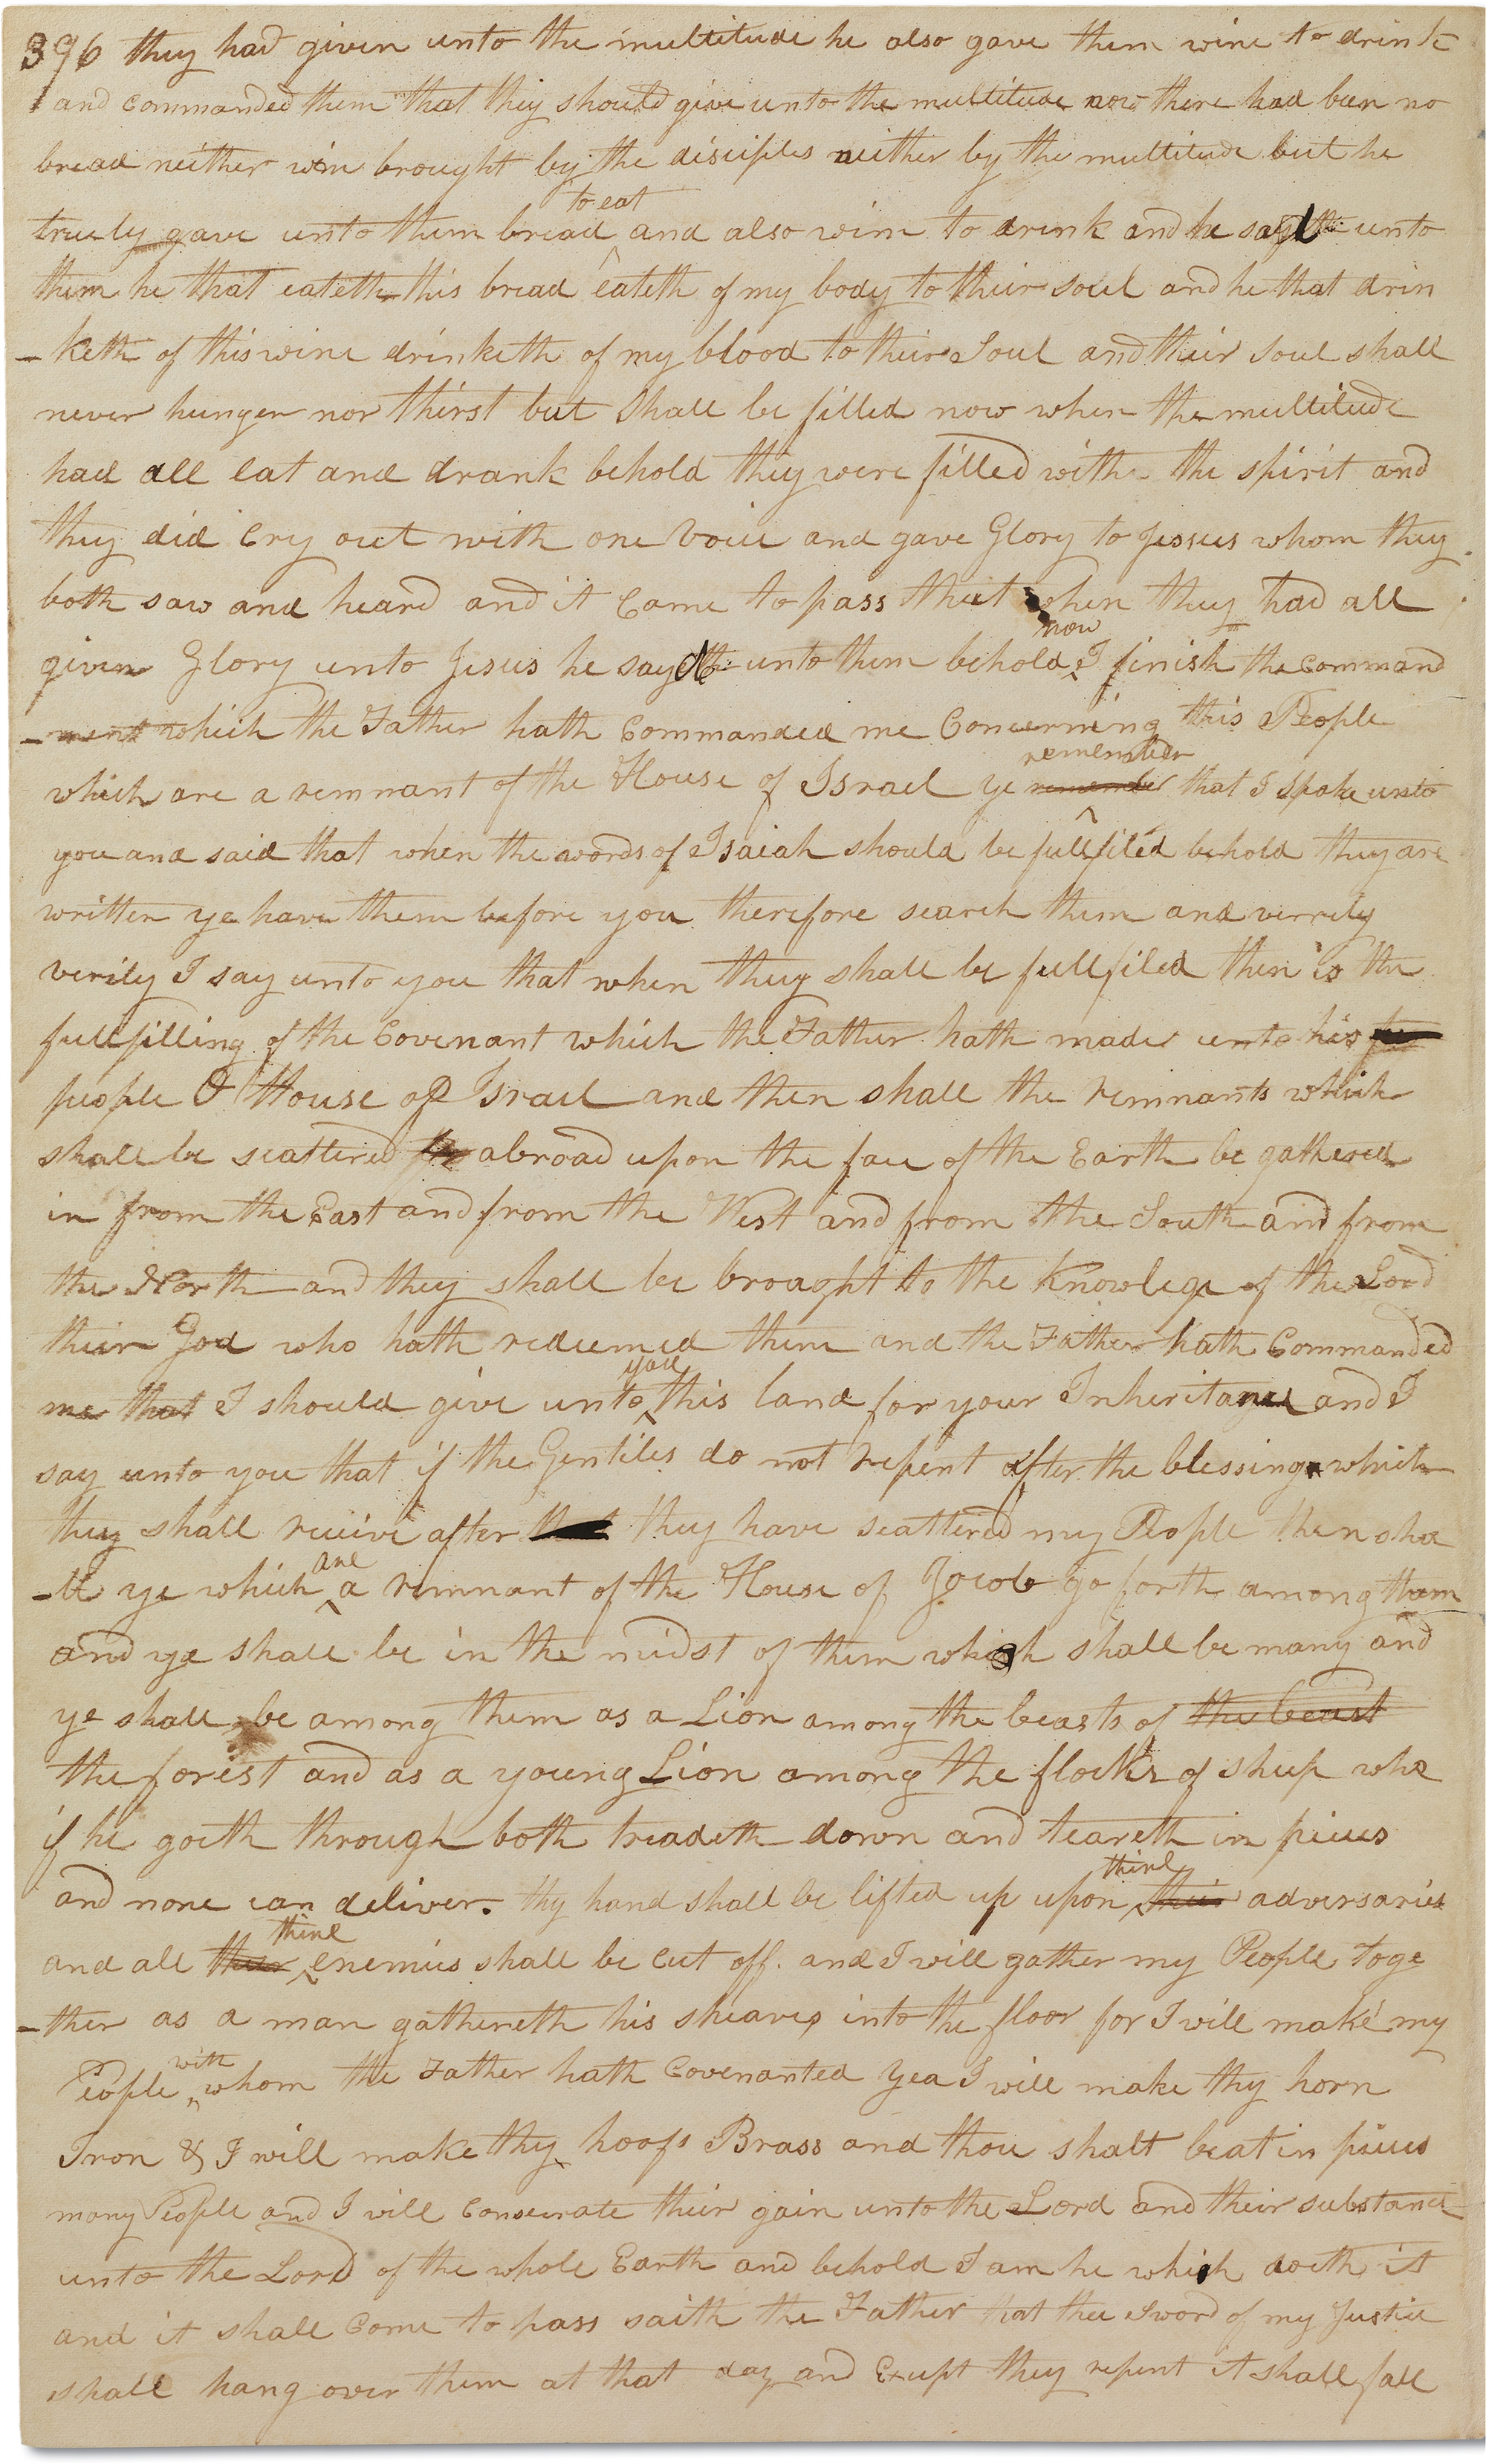 396 they had given unto the multitude he also gave them wine to drink
and commanded them that they should give unto the multitude now there had been no
bread neither wine brought by the disciples neither by the multitude but he
truely gave unto them bread to eat and also wine to drink and he said unto
them he that eateth this bread eateth of my body to their soul and he that drin
-keth of this wine drinketh of my blood to their Soul and their soul shall
never hunger nor thirst but shall be filled now when the multitude
had all eat and drank behold they were filled with the spirit and
they did Cry out with one Voice and gave Glory to Jessus whom they
both saw and heard and it Came to pass that when they had all
given Glory unto Jesus he said unto them behold now I finish the command
-ment which the Father hath Commanded me Concerning this People
which are a remnant of the House of Israel ye remember remember that I spoke unto
you and said that when the words of Isaiah should be fullfiled behold they are
written ye have them before you therefore search them and verrily
verily I say unto you that when they shall be fullfiled then is the
fullfilling of the Covenant which the Father hath made unto his
people O House of Israel and then shall the remnants which
shall be scattered abroad upon the face of the Earth be gathered
in from the East and from the West and from the South and from
the North and they shall be brought to the Knowlege of the Lord
their God who hath redeemed them and the Father hath Commanded
me that I should give unto you this land for your Inheritance and I
say unto you that if the Gentiles do not repent after the blessing which
they shall receive after they have scattered my People then sha
-ll ye which are a remnant of the House of Jocob go forth among them
and ye shall be in the midst of them which shall be many and
ye shall be among them as a Lion among the beasts of the beast
the forest and as a young Lion among the flocks of sheep who
if he goeth through both treadeth down and teareth in pieces
and none can deliver. thy hand shall be lifted up upon thine their adversaries
and all their thine enemies shall be Cut off. and I will gather my People toge
-ther as a man gathereth his sheaves into the floor for I will make my
People with whom the Father hath Covenanted yea I will make thy horn
Iron & I will make thy hoofs Brass and thou shalt beat in pieces
many People and I will Consecrate their gain unto the Lord and their substance
unto the Lord of the whole Earth and behold I am he which doeth it
and it shall Come to pass saith the Father that the Sword of my Justice
shall hang over them at that day and Except they repent it shall fall